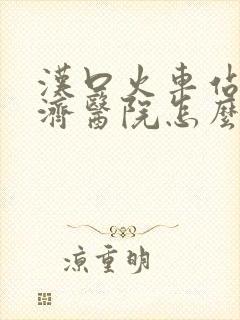 漢口火車佔
濟醫院怎麼
涼重明